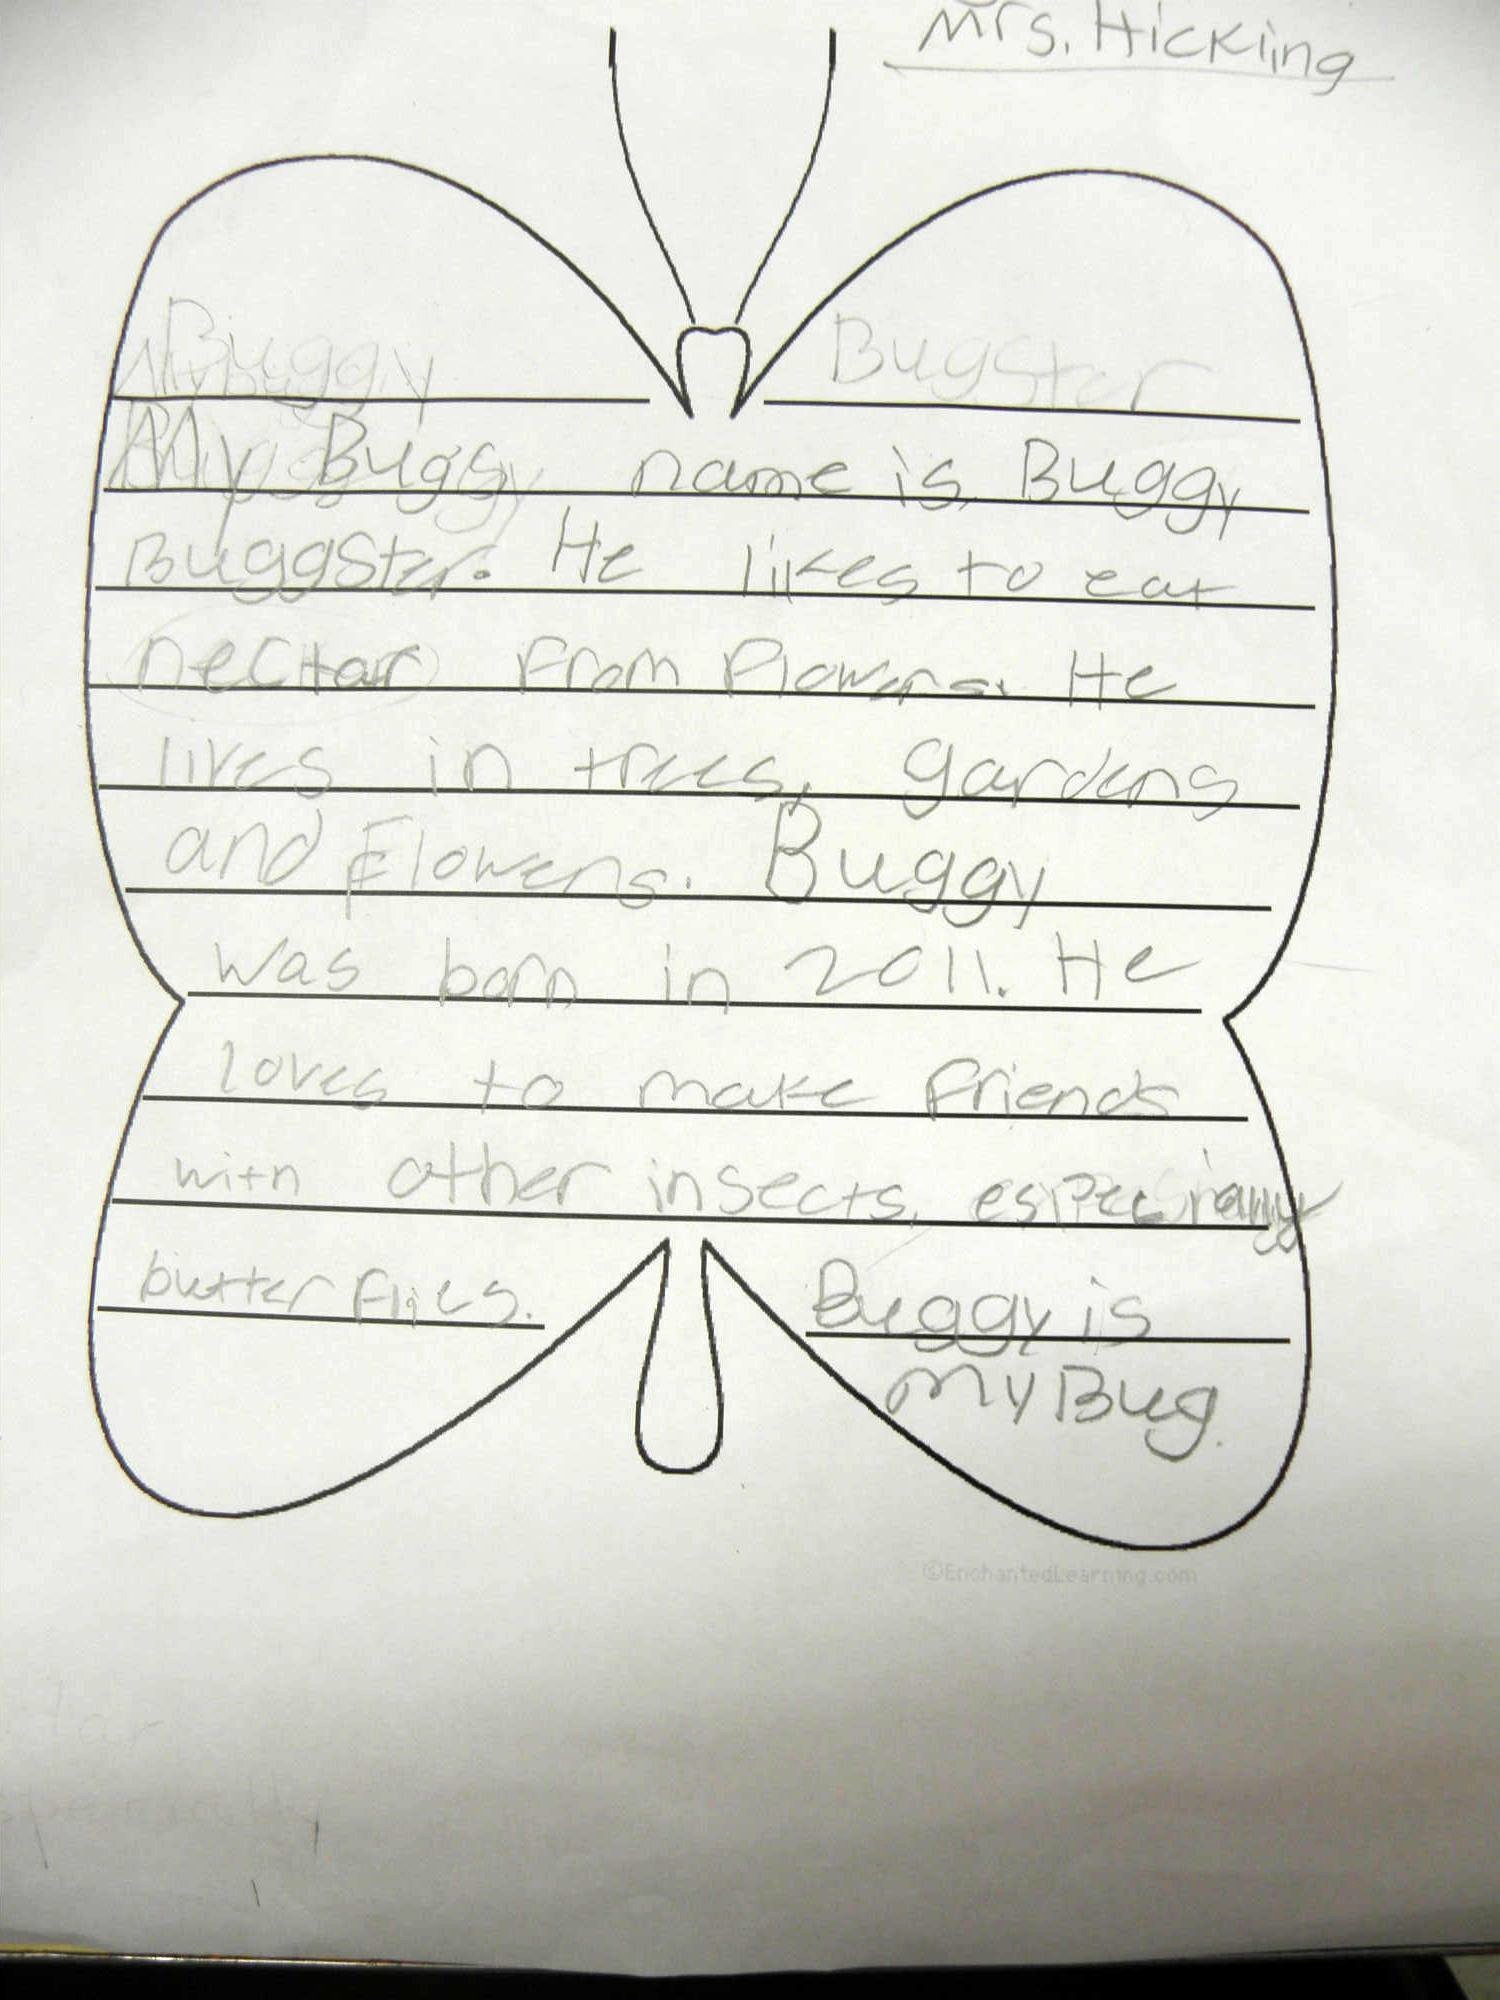 Mrs. Hickling
Buggy Bugster
My Buggy name is Buggy
Buggster. He likes to eat
nectar from Flowers. He
lives in trees, gardens
and Flowers. Buggy
was born in 2011. He
loves to make friends
with other insects, especially
butterflies. Buggy is
My Bug.
©EnchantedLearning.com